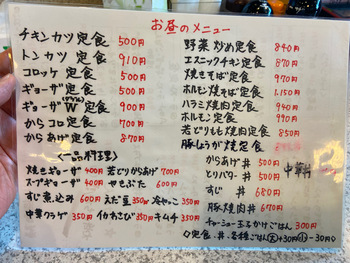 お昼のメニュー
チキンカツ定食 500円
トンカツ定食 910円
コロッケ定食 500円
ギョーザ定食 500円
ギョーザW定食 900円
からコロ定食 700円
からあげ定食 870円
野菜炒め定食 840円
エスニックチキン定食 870円
焼きそば定食 970円
ホルモン焼そば定食 1,150円
ハラミ焼肉定食 940円
ホルモン定食 990円
若どりもも焼肉定食 850円
豚しょうが焼定食
一品料理
焼きギョーザ 400円 若どりからあげ 700円
スープギョーザ 400円 やきぶた 600円
すじ煮こみ 600円 えだ豆 350円 冷やっこ 350円
中華クラゲ 350円 イカあさび 350円 キムチ 350円
からあげ丼 500円
とりバター丼 500円
中華丼
すじ丼 680円
豚焼肉丼 670円
チャーシュー玉子かけごはん 300円
◇定食・丼・各種ごはん大+30円小-30円◇